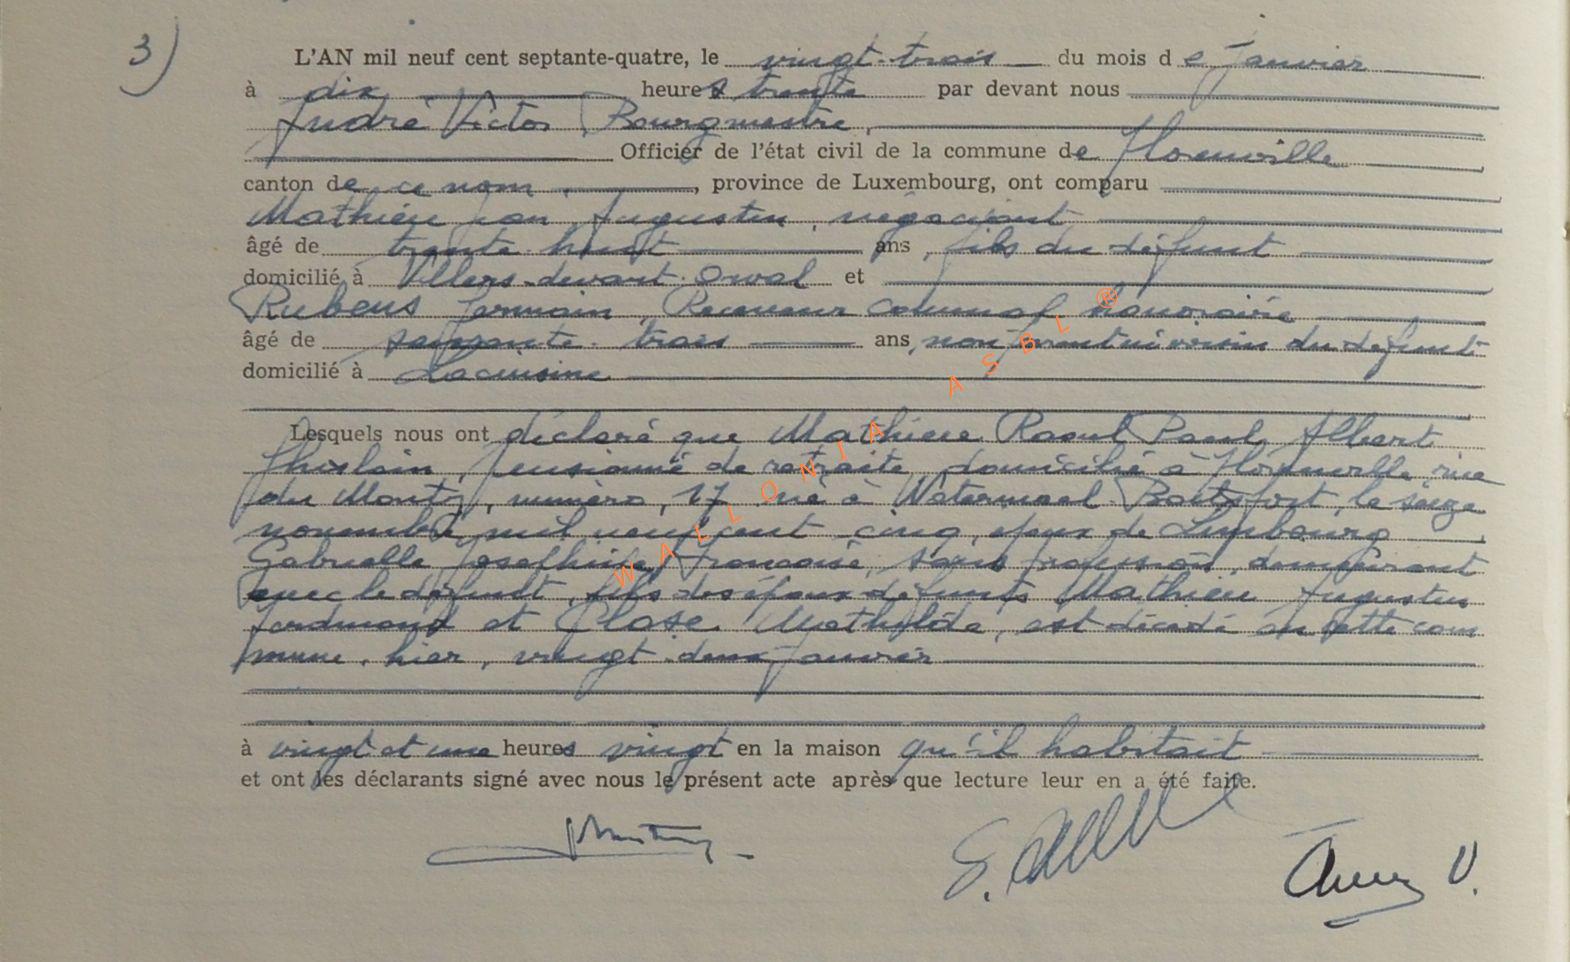 3)
L'AN mil neuf cent septante-quatre, le vingt-trois du mois de Janvier
à dix heures trente par devant nous
André Victor Bourgmestre,
Officier de l'état civil de la commune de Florenville
canton de ce nom, province de Luxembourg, ont comparu
Mathieu Jean Augustin, négociant
âgé de trente huit ans, fils du défunt
domicilié à Villers-devant-Orval et
Rubens Germain, Receveur communal honoraire
âgé de soixante-trois ans, non parent ni voisin du défunt
domicilié à Lacuisine
Lesquels nous ont déclaré que Mathieu Raoul Paul Albert
Ghislain, pensionné de retraite, domicilié à Florenville, rue
du Monty, numéro, 17 né à Watermael-Boitsfort, le seize
novembre mil neuf cent cinq, époux de Limbourg
Gabrielle Joséphine, Françoise, sans profession, demeurant
avec le défunt, fils des époux défunts Mathieu Augustin
et Close Mathilde, est décédé en cette com
mune, hier, vingt-deux janvier
à vingt et une heures vingt en la maison qu'il habitait
et ont les déclarants signé avec nous le présent acte après que lecture leur en a été faite.
WALLONIA ASBL ®